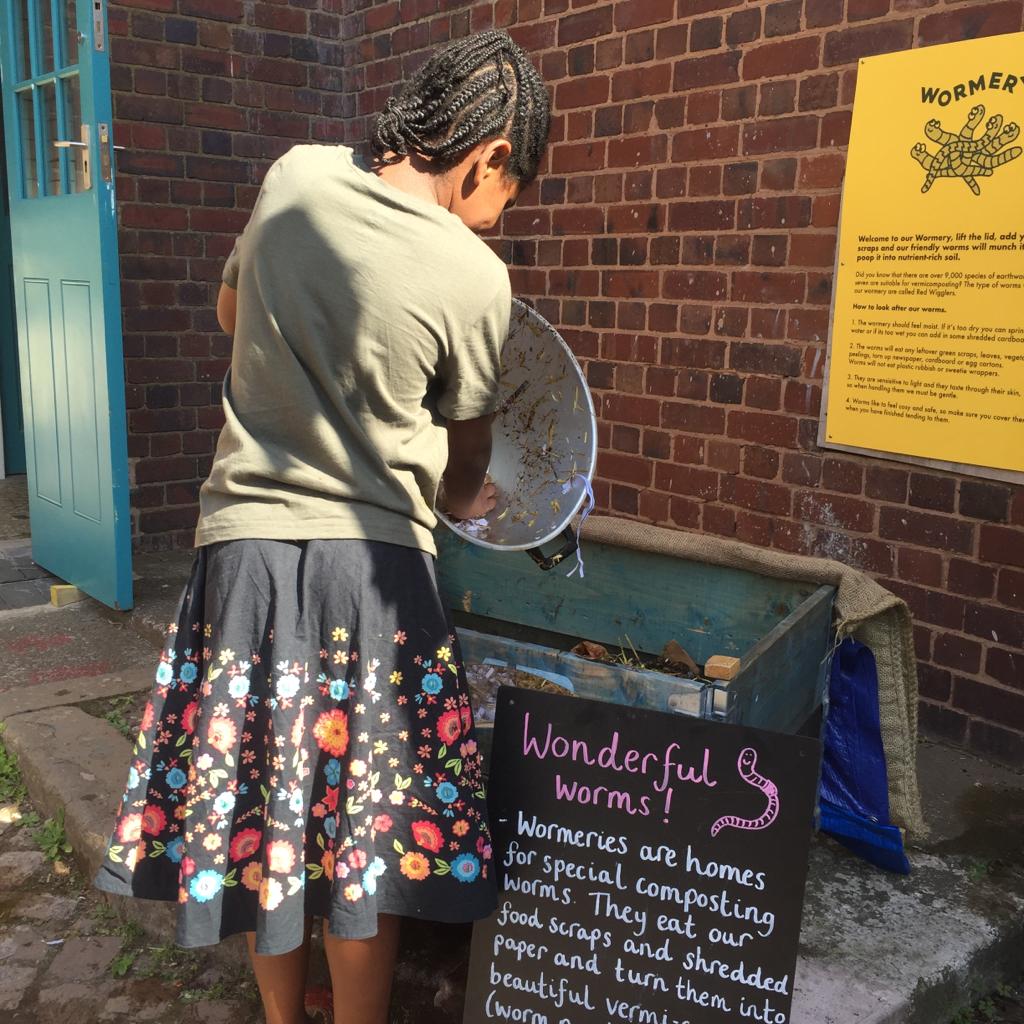 WORMERY
Welcome to our Wormery, lift the lid, add y
scraps and our friendly worms will munch it
poop it into nutrient-rich soil.
Did you know that there are over 9,000 species of earthwo
seven are suitable for vermicomposting? The type of worms
our wormery are called Red Wigglers.
How to look after our worms.
1. The wormery should feel moist. If it's too dry you can sprin
water or if its too wet you can add in some shredded cardboa
2. The worms will eat any leftover green scraps, leaves, veget
peelings, torn up newspaper, cardboard or egg cartons.
Worms will not eat plastic rubbish or sweetie wrappers.
3. They are sensitive to light and they taste through their skin,
so when handling them we must be gentle.
4. Worms like to feel cosy and safe, so make sure you cover the
when you have finished tending to them.
Wonderful
worms!
- Wormeries are homes
for special composting
worms. They eat our
food scraps and shredded
paper and turn them into
beautiful vermi-
(worm